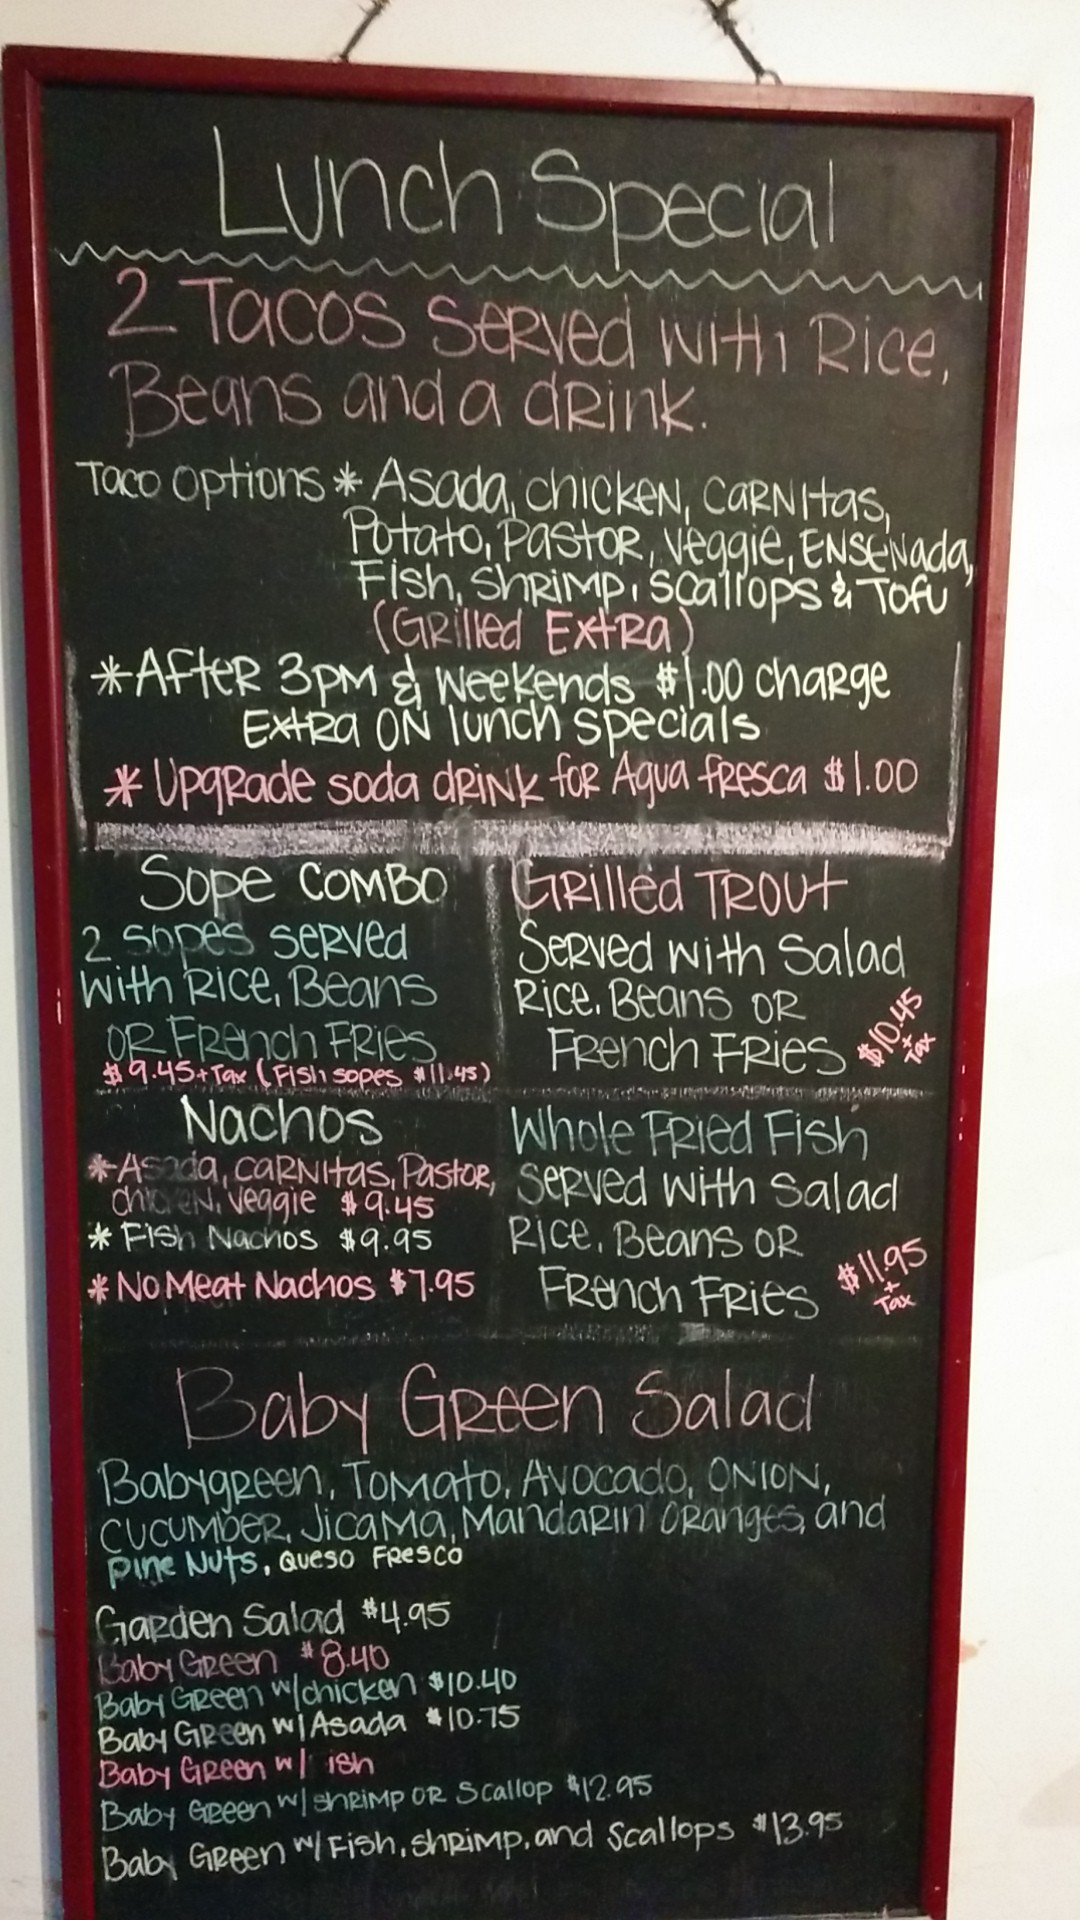 Lunch Special
2 Tacos Served with Rice,
Beans and a drink.
Taco Options * Asada, chicken, carnitas,
Potato, Pastor, Veggie, Ensenada,
Fish, Shrimp, Scallops & Tofu
(Grilled Extra)
*After 3pm & weekends $1.00 charge
Extra on lunch specials
* Upgrade soda drink for Agua fresca $1.00
Sope Combo
2 sopes served
with Rice, Beans
or French Fries
$9.45+Tax (Fish sopes $11.45)
Grilled Trout
Served with Salad
Rice, Beans or
French Fries
$10.45
+
Tax
Nachos
*Asada, carnitas, Pastor,
chicken, veggie $9.45
* Fish Nachos $9.95
* No Meat Nachos $7.95
Whole Fried Fish
Served with Salad
Rice, Beans or
French Fries
$11.95
+
Tax
Baby Green Salad
Babygreen, Tomato, Avocado, Onion,
Cucumber, Jicama, Mandarin oranges, and
pine Nuts, Queso Fresco
Garden Salad $4.95
Baby Green $8.40
Baby Green w/chicken $10.40
Baby Green w/Asada $10.75
Baby Green w/ ish
Baby Green w/shrimp or Scallop $12.95
Baby Green w/Fish, shrimp, and Scallops $13.95